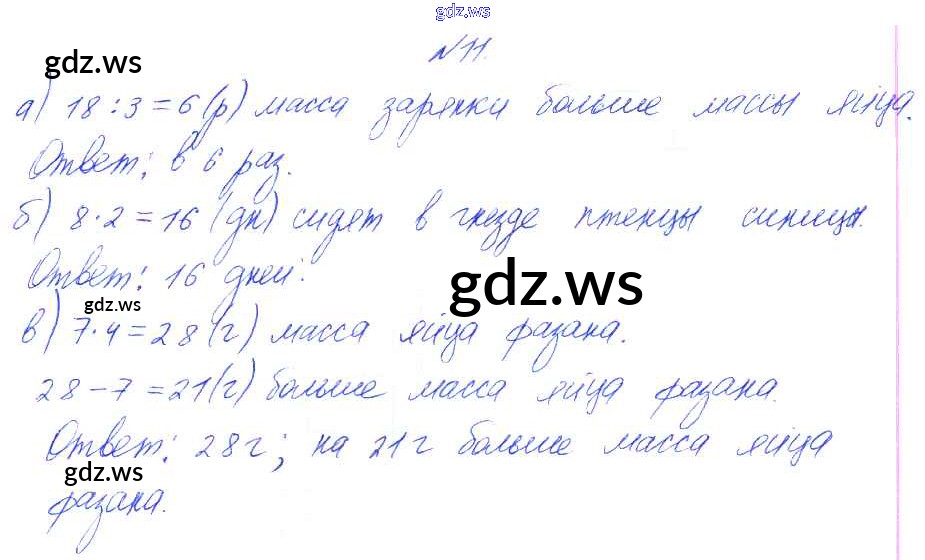 gdz.ws
№11.
gdz.ws
а) 18:3=6(р) масса зарянки больше массы яйца.
Ответ: в 6 раз.
б) 8·2=16 (дн) сидят в гнезде птенцы синицы.
Ответ: 16 дней.
gdz.ws
gdz.ws
в) 7·4=28(г) масса яйца фазана.
28-7=21(г) больше масса яйца фазана.
Ответ: 28г; на 21г больше масса яйца
gdz.ws
фазана.